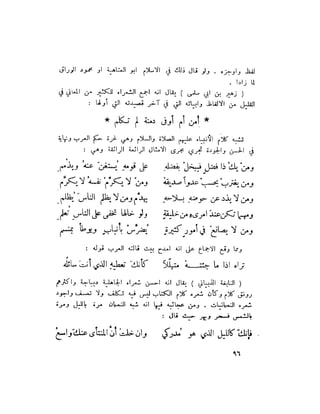 لفظ واوجزه . ولو قال ذلك في الاسلام ابو العتاهية او محمود الوراق
لما زادا .
( زهير بن ابي سلمى ) يقال انه اجمع الشعراء للكثير من المعاني في
القليل من الالفاظ وابياته التي في آخر قصيدته التي أولها :
* أمن أم أوفى دمنة لم تكلم *
تشبه كلام الأنبياء عليهم الصلاة والسلام وهي غرة حكم العرب ونهاية
في الحسن والجودة تجري مجرى الامثال الرائعة الرائقة وهي :
ومن يك ذا فضل فيبخل بفضله على قومه يستغن عنه ويذمم
ومن يغترب يحسب عدواً صديقه ومن لا يكرم نفسه لا يكرم
ومن لا يذد عن حوضه بسلاحه يهدم ومن لا يظلم الناس يظلم
ومهما تكن عند امرىء من خليقة ولو خالها تخفى على الناس تعلم
ومن لا يصانع في أمور كثيرة يضرس بأنياب ويوطأ بمنسم
ومما وقع الاجماع على انه امدح بيت قالته العرب قوله :
تراه اذا ما جئتـــه متهللاً كأنك تعطيه الذي أنت سائله
( النابغة الذبياني ) يقال انه احسن شعراء الجاهلية ديباجة واكثرهم
رونق كلام وكأن شعره كلام الكتاب ليس فيه تكلف ولا تعسف واجود
شعره النعمانيات . ومن عجائبه فيها انه شبه النعمان مرة بالليل ومرة
بالشمس فسحر وبهر حيث قال :
فإنك كالليل الذي هو مدركي وإن خلت أن المنتأى عنك واسع
٩٦